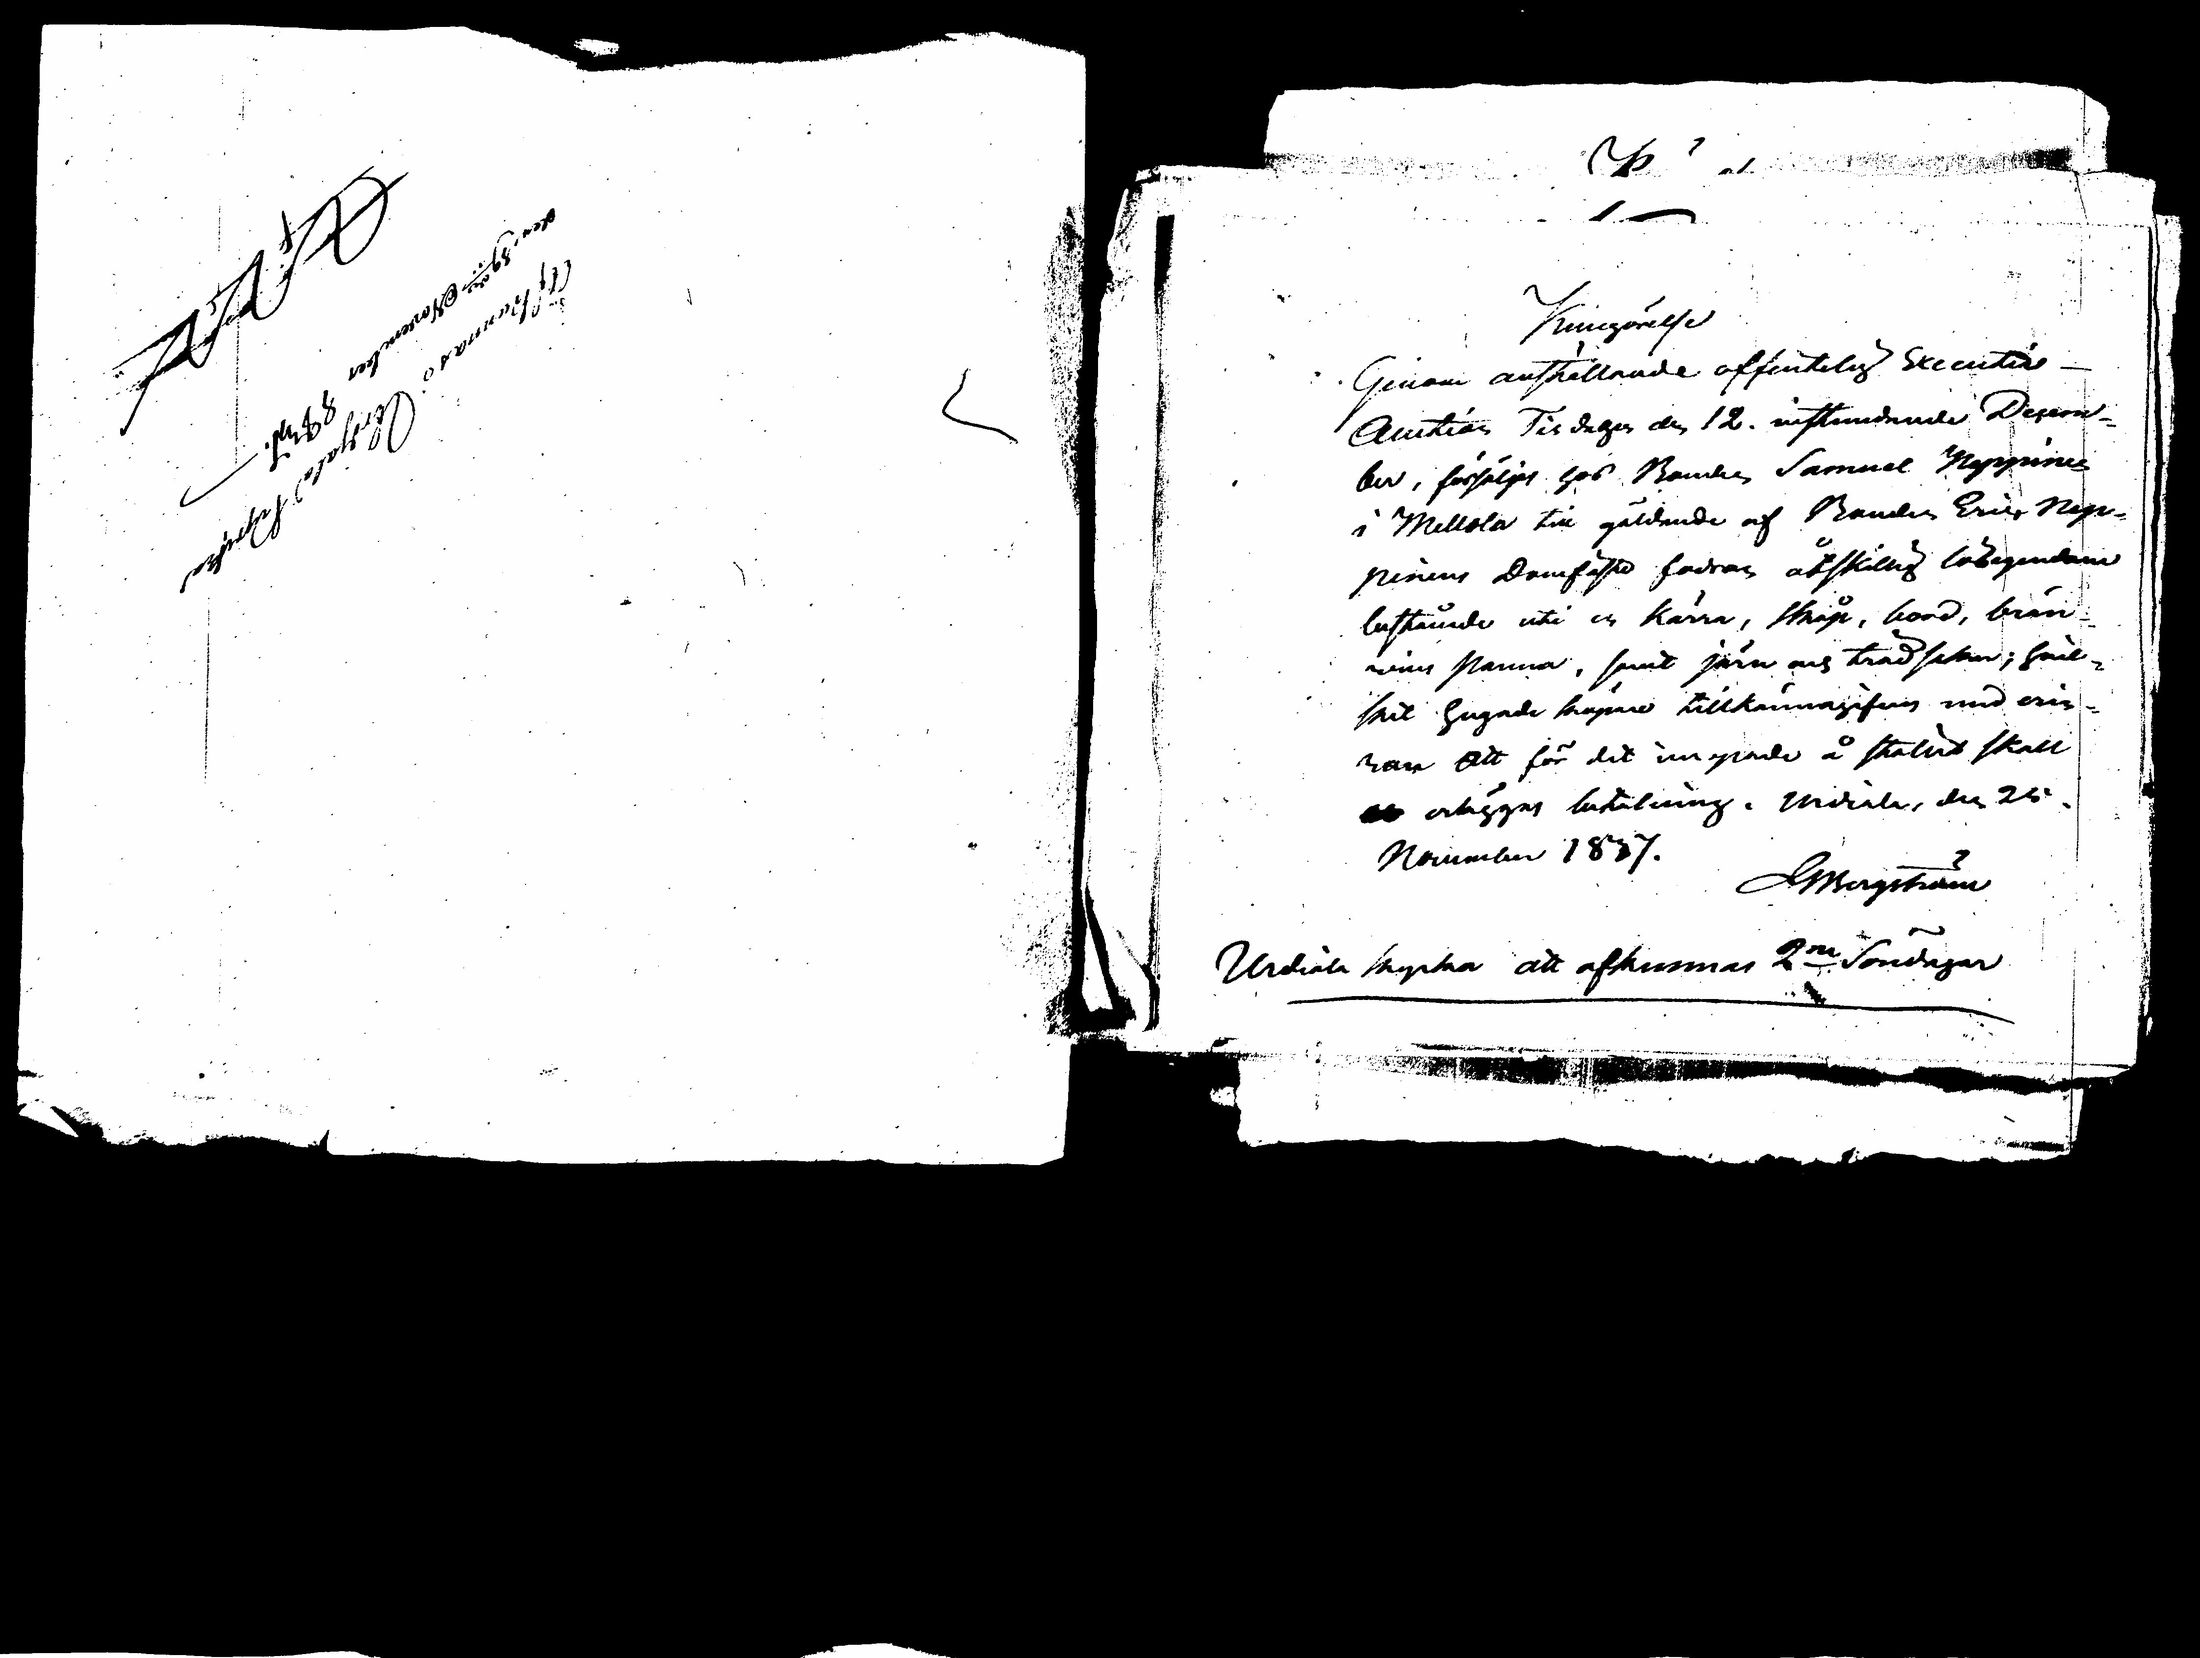 Kungörelse
Genom anställande offentelig Executiv
Auction Tisdagen den 12. instundande Decem-
ber, försäljes hos Bonden Samuel Nyppinen
i Mellola till gäldande af Bonden Eric Nyp-
pinens Domfäste fordran åtskillig lösegendom
bestående uti en Kärra, skåp, bord, brän-
vins panna, samt järn och trädsaker; hvil-
ket hugade köpare tillkännagifves med erin-
ran att för det inropade å stället skall
erläggas betalning. Urdiala, den 25.
November 1837.
Bergström
Urdiala kyrka att afkunnas 2ne Söndagar
Afkunnas i
den November